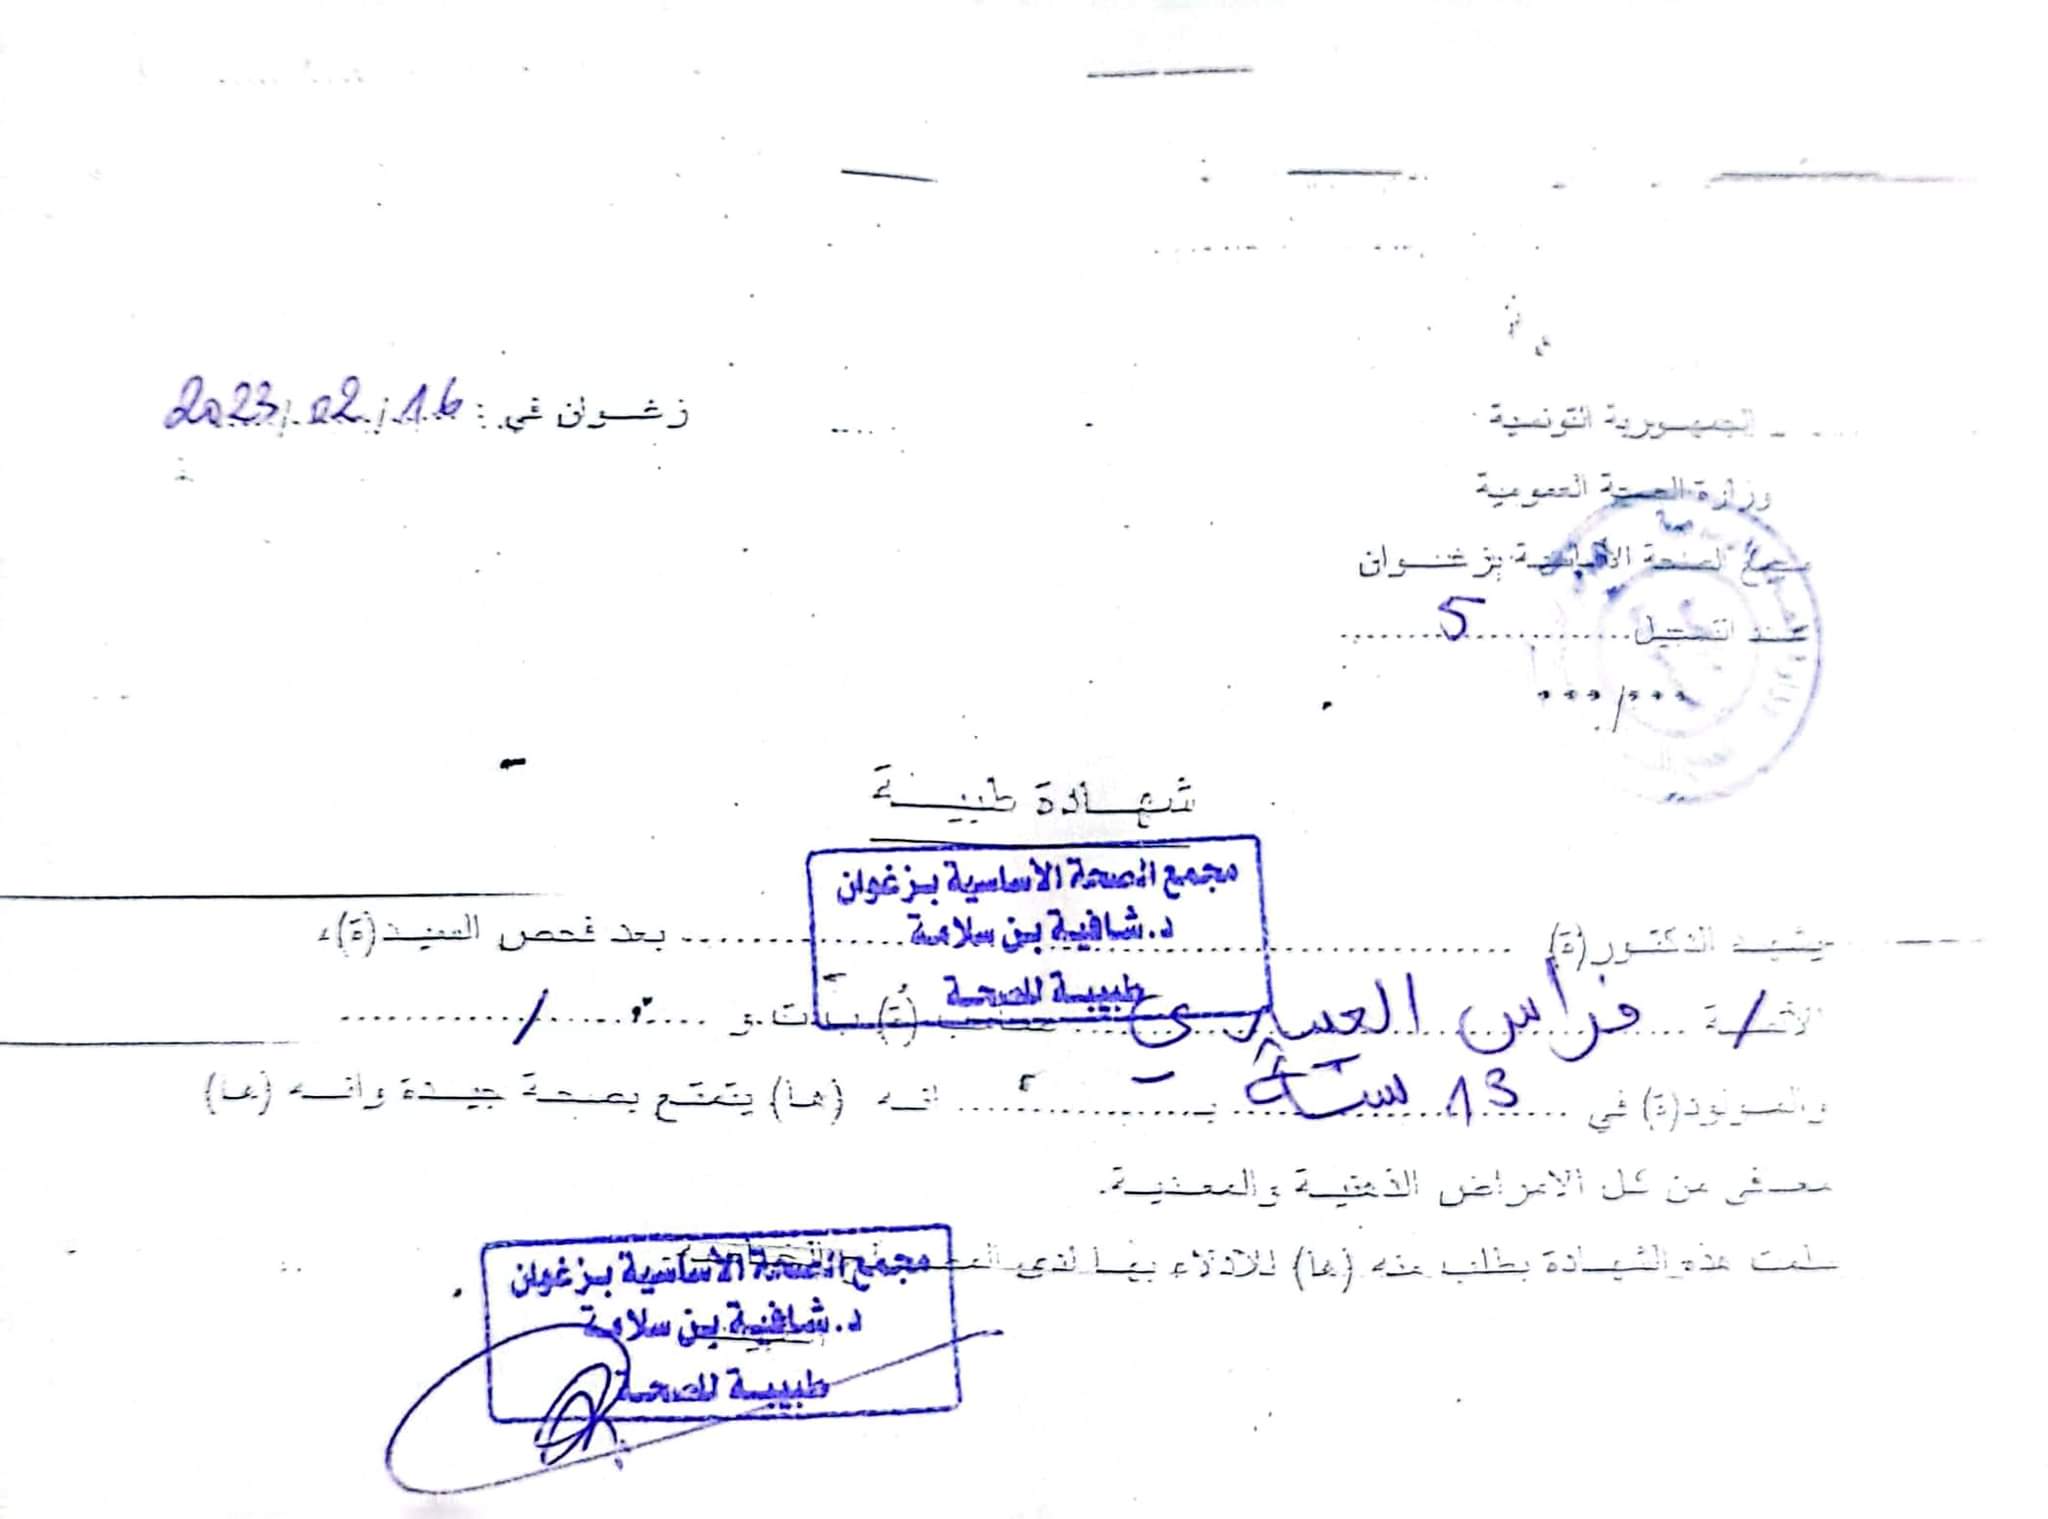 الجمهورية التونسية
زغوان في : 2023/02/16
وزارة الصحة العمومية
مجمع الصحة الأساسية بزغوان
عدد التسجيل 5
***/***
شهادة طبية
مجمع الصحة الأساسية بزغوان
د. شافية بن سلامة
طبيبة للصحة
يشهد الدكتور(ة) بعد فحص السيد(ة)،
الآنسة فراس العياري صاحب (ة) ب.ت.و /
والمولود(ة) في 13 سنة ب انه (ها) يتمتع بصحة جيدة وانه (ها)
معفى من كل الامراض الذهنية والمعدية.
سلمت هذه الشهادة بطلب منه (ها) للادلاء بها لدى
مجمع الصحة الأساسية بزغوان
د. شافية بن سلامة
طبيبة للصحة